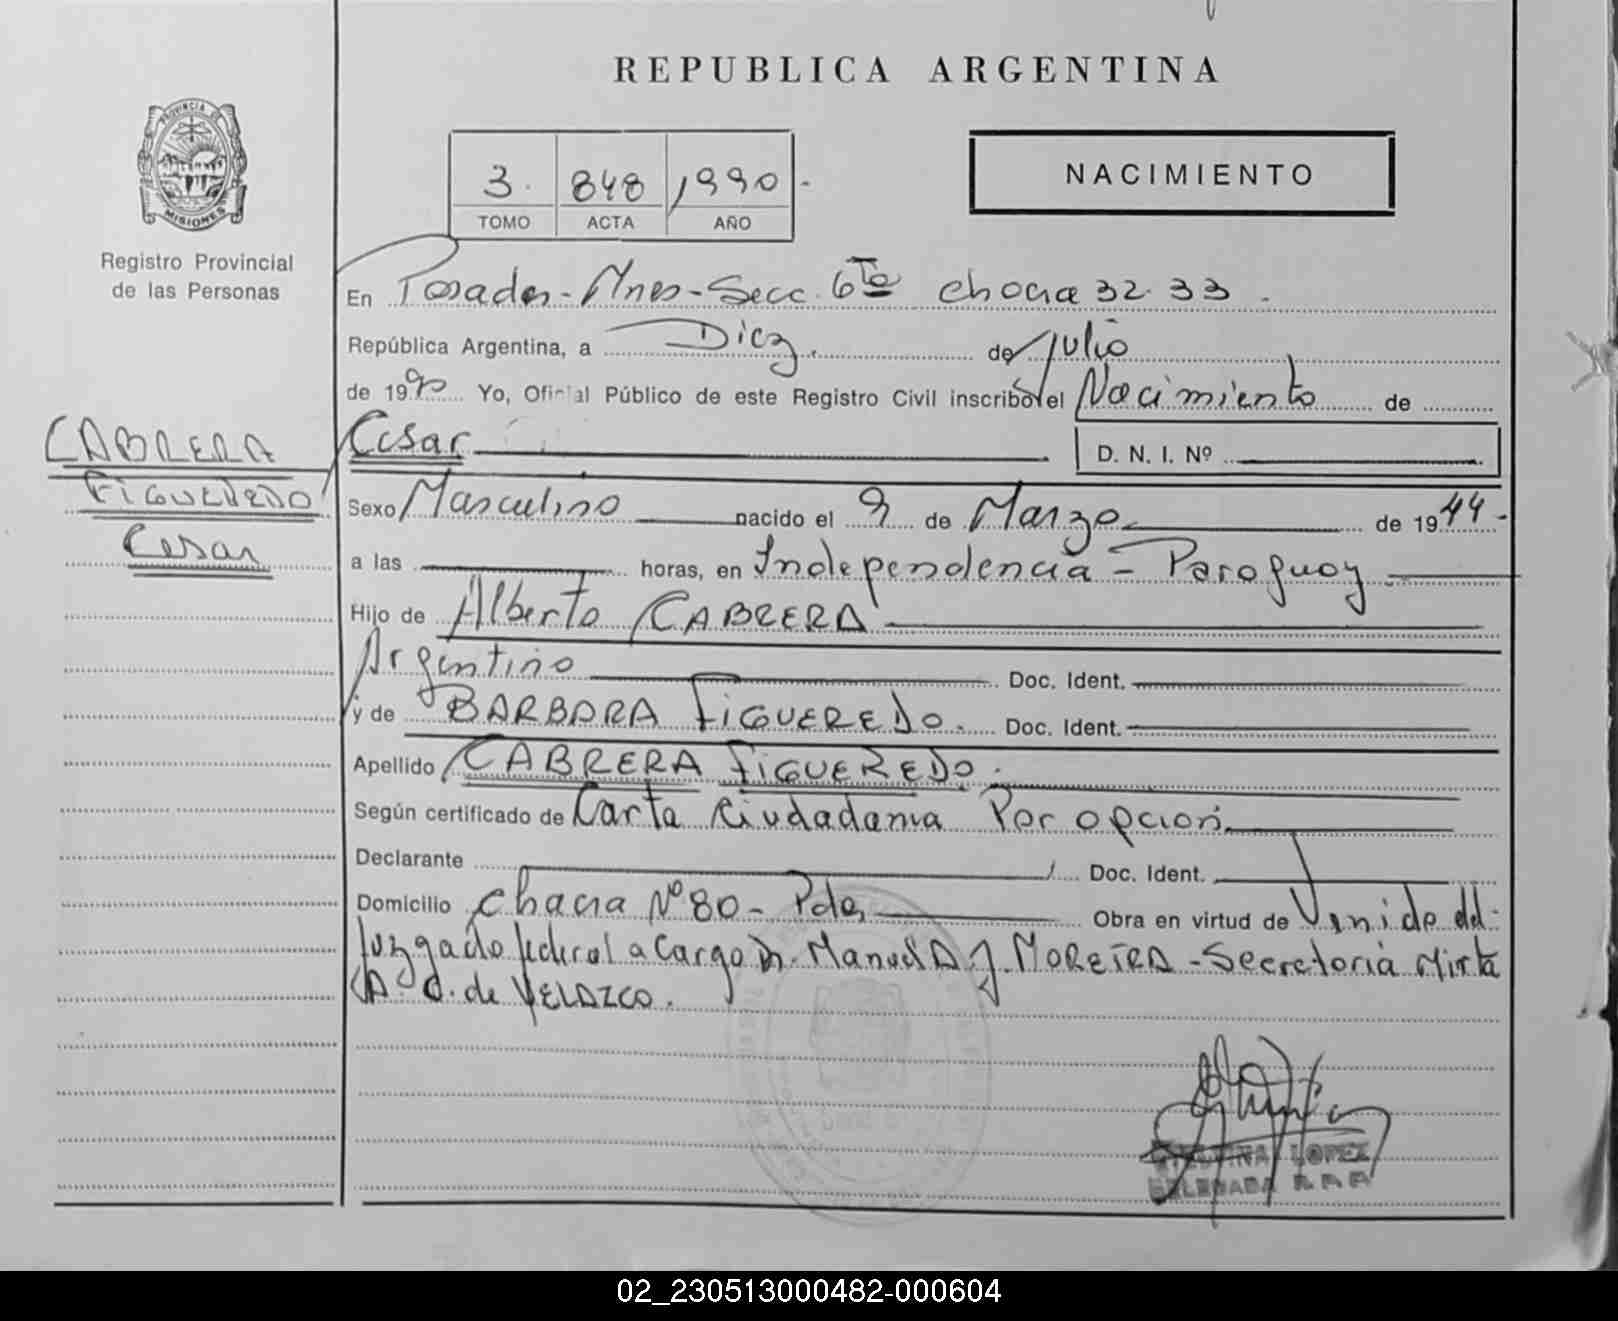 REPUBLICA ARGENTINA
PROVINCIA DE
MISIONES
Registro Provincial
de las Personas
3. 848 1990.-
TOMO ACTA AÑO
NACIMIENTO
En Posadas-Mnes-Secc 6ta chacra 32-33.
República Argentina, a Diez de julio
de 1990 Yo, Oficial Público de este Registro Civil inscribo el Nacimiento de
CABRERA
FIGUEREDO
Cesar
Cesar D. N. I. Nº
Sexo Masculino nacido el 9 de Marzo de 1944-
a las horas, en Independencia - Paraguay
Hijo de Alberto CABRERA
Argentino Doc. Ident.
y de BARBARA FIGUEREDO. Doc. Ident.
Apellido CABRERA FIGUEREDO.
Según certificado de Carta Ciudadania Por opcion
Declarante Doc. Ident.
Domicilio chacra Nº 80- Pdas Obra en virtud de Venido del
Juzgado federal a Cargo Dr. Manuel A J. MOREIRA - Secretoria Mirta
de VELAZCO.
LOPEZ
DELEGADA R. P. P.
02_230513000482-000604